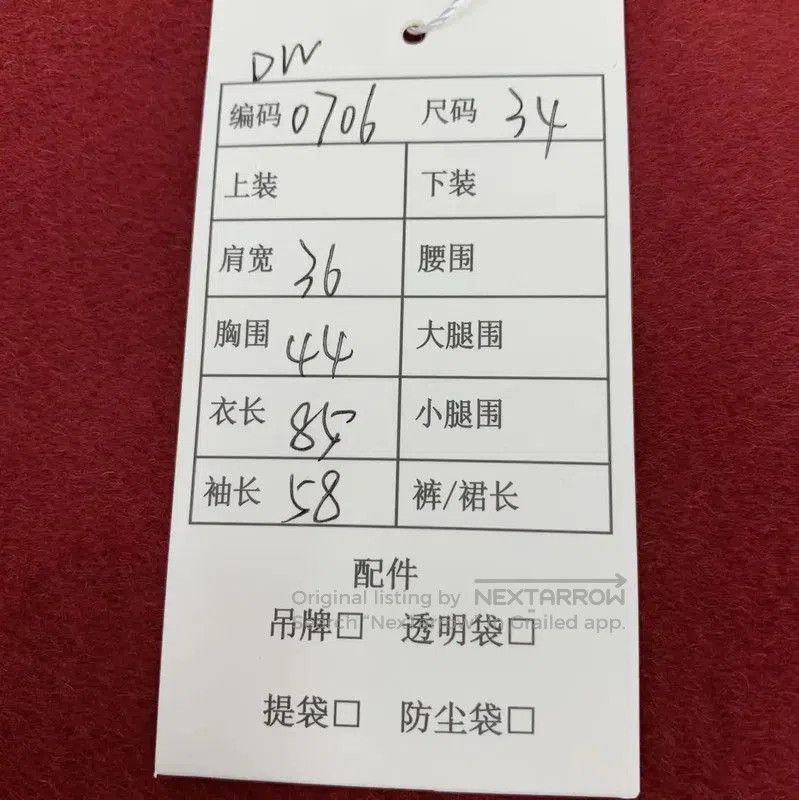 DW
编码 0706 尺码 34
上装 下装
肩宽 36 腰围
胸围 44 大腿围
衣长 85 小腿围
袖长 58 裤/裙长
配件
Original listing by NEXTARROW
吊牌□ 透明袋□
Search "Nextarrow" in Grailed app.
提袋□ 防尘袋□